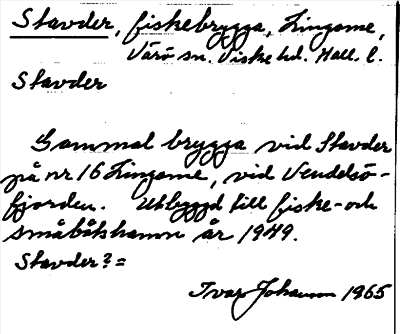 Stavder, fiskebrygga, Lingome,
Värö sn. Viske hd. Hall. l.
Stavder
Gammal brygga vid Stavder
på nr 16 Lingome, vid Vendelsö-
fjorden. Utbyggd till fiske- och
småbåtshamn år 1949.
Stavder? =
Ivar Johanson 1965